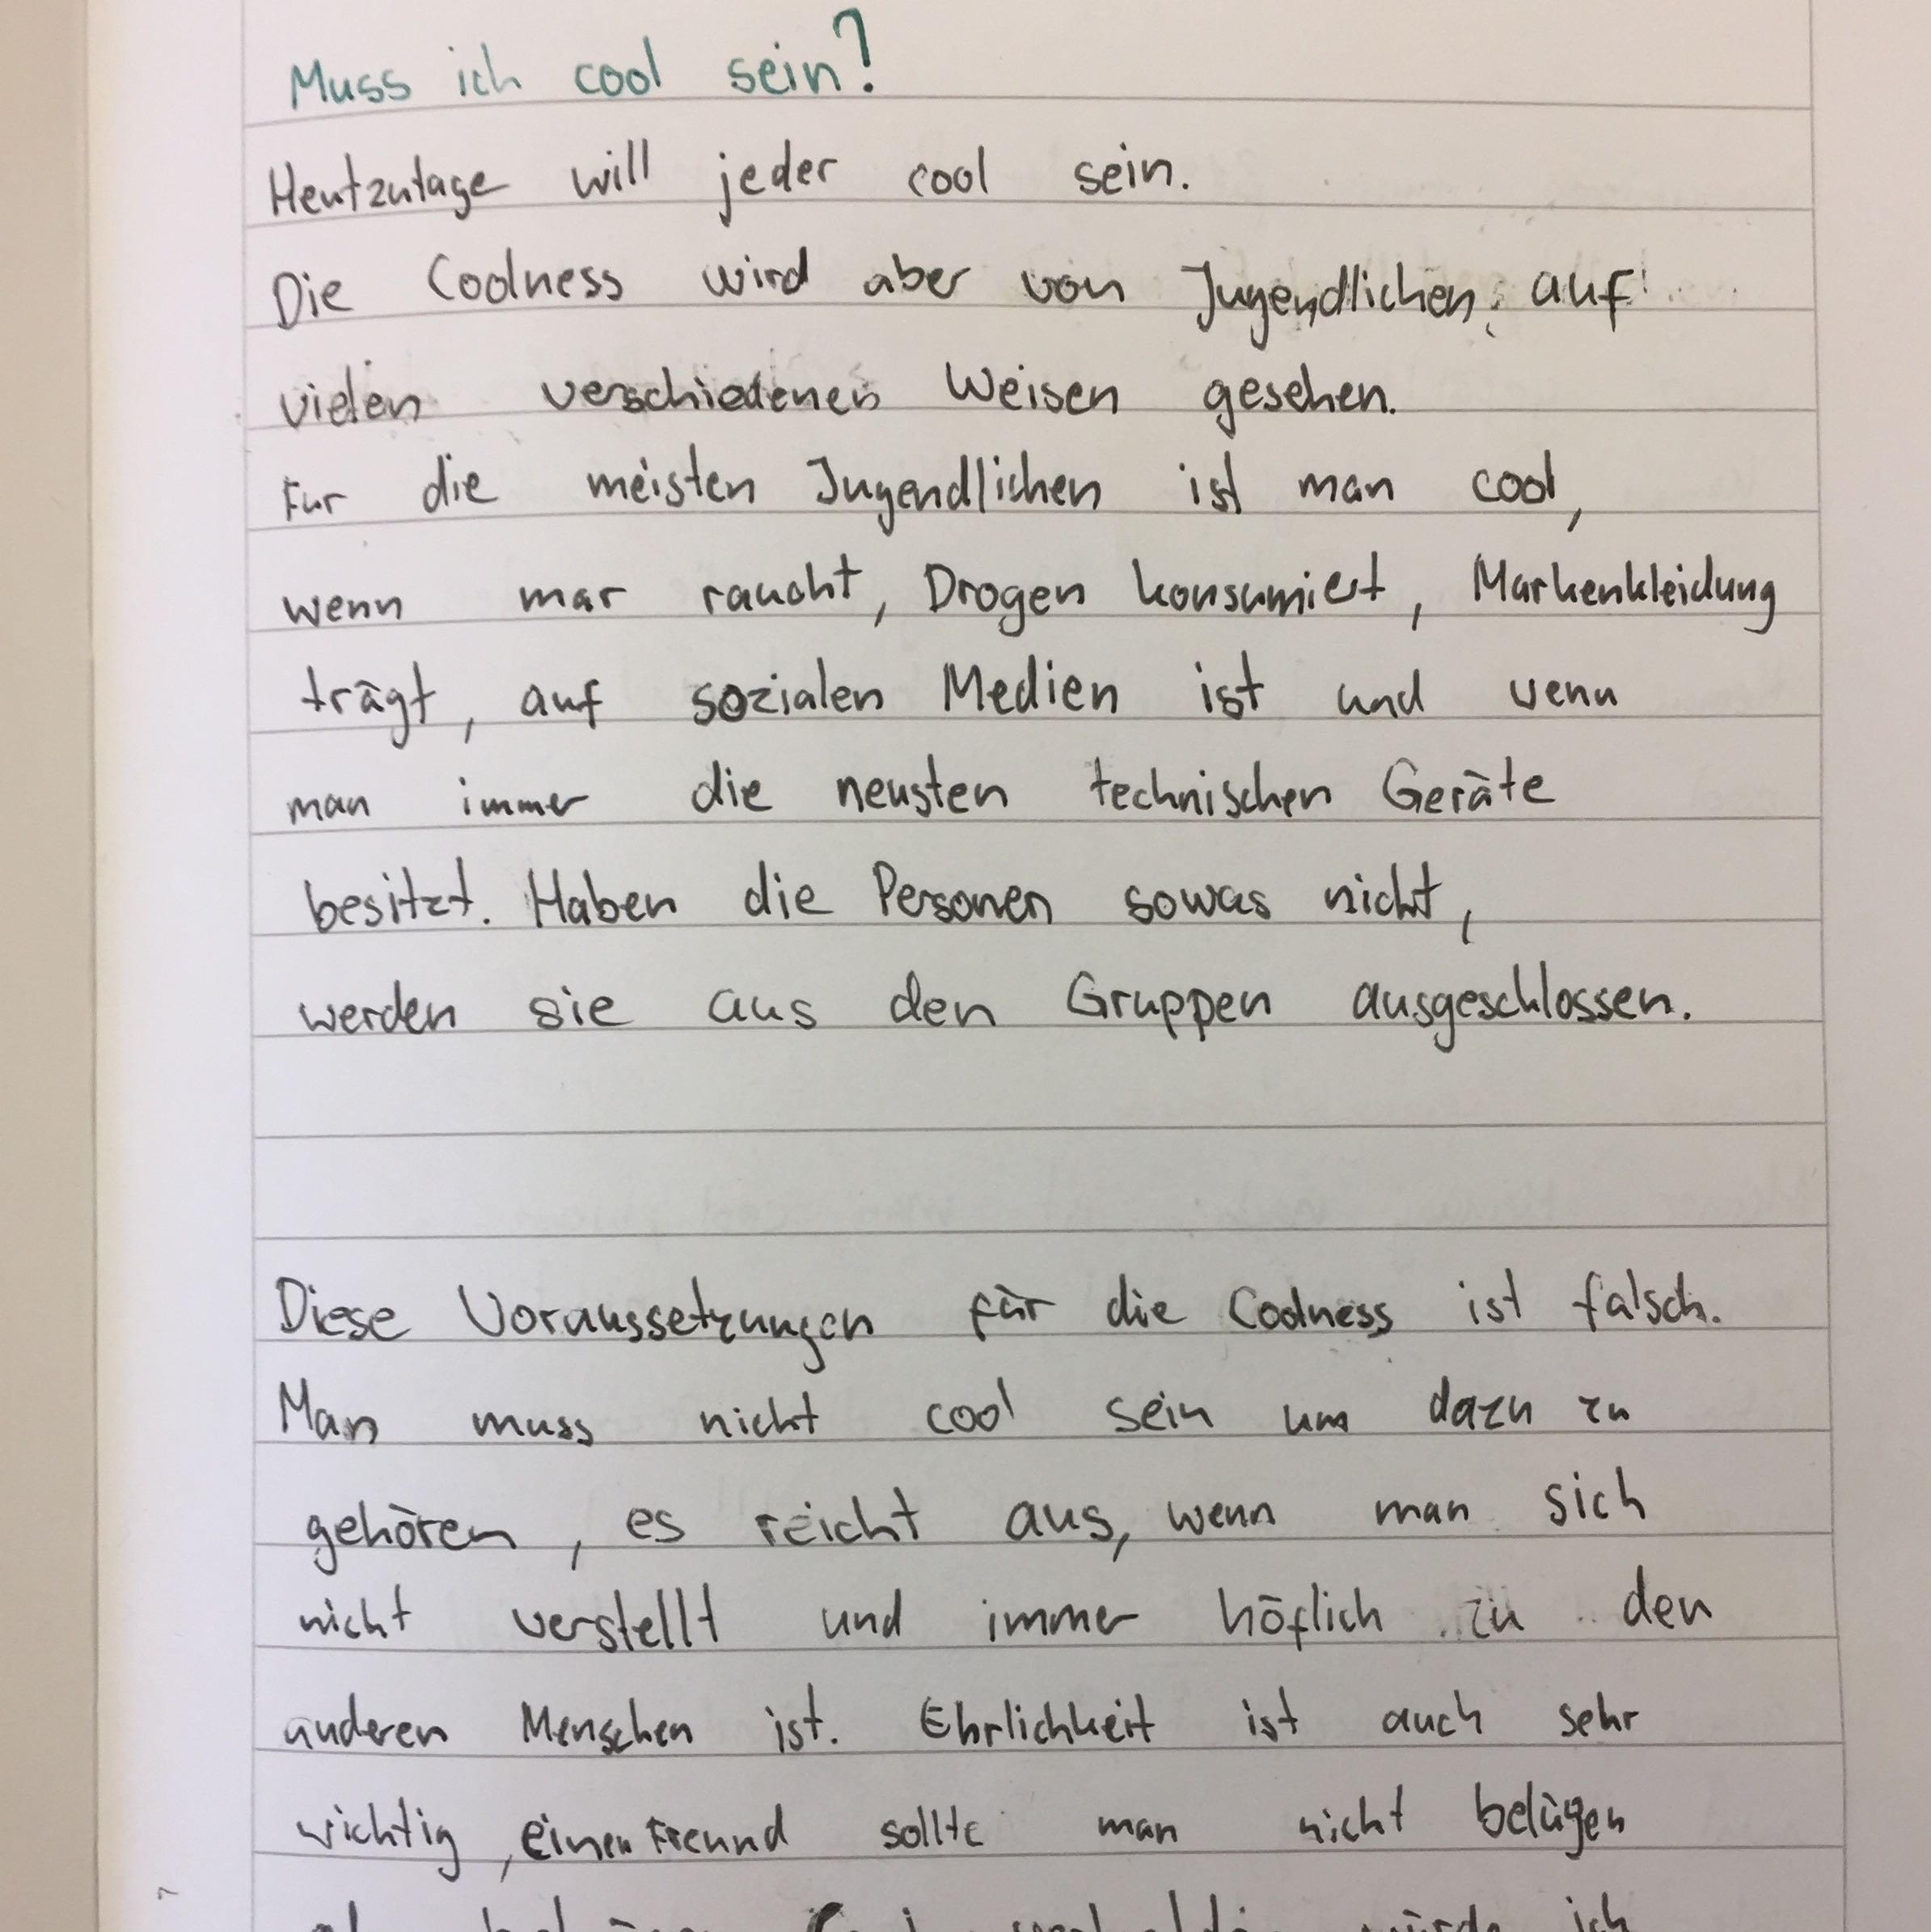 Muss ich cool sein?
Heutzutage will jeder cool sein.
Die Coolness wird aber von Jugendlichen auf
vielen verschiedenen Weisen gesehen.
Für die meisten Jugendlichen ist man cool,
wenn man raucht, Drogen konsumiert, Markenkleidung
trägt, auf sozialen Medien ist und wenn
man immer die neusten technischen Geräte
besitzt. Haben die Personen sowas nicht,
werden sie aus den Gruppen ausgeschlossen.
Diese Voraussetzungen für die Coolness ist falsch.
Man muss nicht cool sein um dazu zu
gehören, es reicht aus, wenn man sich
nicht verstellt und immer höflich zu den
anderen Menschen ist. Ehrlichkeit ist auch sehr
wichtig, einen Freund sollte man nicht belügen
würde ich